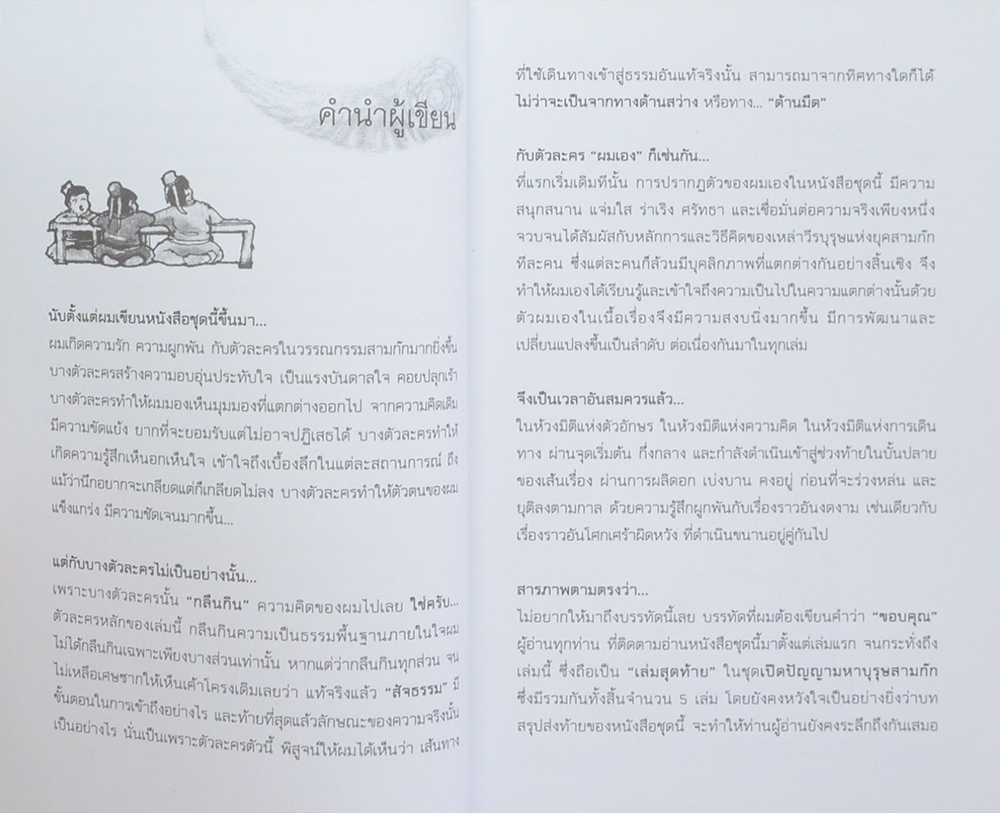 คำนำผู้เขียน
นับตั้งแต่ผมเขียนหนังสือชุดนี้ขึ้นมา...
ผมเกิดความรัก ความผูกพัน กับตัวละครในวรรณกรรมสามก๊กมากยิ่งขึ้น
บางตัวละครสร้างความอบอุ่นประทับใจ เป็นแรงบันดาลใจ คอยปลุกเร้า
บางตัวละครทำให้ผมมองเห็นมุมมองที่แตกต่างออกไป จากความคิดเดิม
มีความขัดแย้ง ยากที่จะยอมรับแต่ไม่อาจปฏิเสธได้ บางตัวละครทำให้
เกิดความรู้สึกเห็นอกเห็นใจ เข้าใจถึงเบื้องลึกในแต่ละสถานการณ์ ถึง
แม้ว่านึกอยากจะเกลียดแต่ก็เกลียดไม่ลง บางตัวละครทำให้ตัวตนของผม
แข็งแกร่ง มีความชัดเจนมากขึ้น...
แต่กับบางตัวละครไม่เป็นอย่างนั้น...
เพราะบางตัวละครนั้น “กลืนกิน” ความคิดของผมไปเลย ใช่ครับ...
ตัวละครหลักของเล่มนี้ กลืนกินความเป็นธรรมพื้นฐานภายในใจผม
ไม่ได้กลืนกินเฉพาะเพียงบางส่วนเท่านั้น หากแต่ว่ากลืนกินทุกส่วน จน
ไม่เหลือเศษซากให้เห็นเค้าโครงเดิมเลยว่า แท้จริงแล้ว “สัจธรรม” มี
ขั้นตอนในการเข้าถึงอย่างไร และท้ายที่สุดแล้วลักษณะของความจริงนั้น
เป็นอย่างไร นั่นเป็นเพราะตัวละครตัวนี้ พิสูจน์ให้ผมได้เห็นว่า เส้นทาง
ที่ใช้เดินทางเข้าสู่ธรรมอันแท้จริงนั้น สามารถมาจากทิศทางใดก็ได้
ไม่ว่าจะเป็นจากทางด้านสว่าง หรือทาง... “ด้านมืด”
กับตัวละคร “ผมเอง” ก็เช่นกัน...
ที่แรกเริ่มเดิมทีนั้น การปรากฏตัวของผมเองในหนังสือชุดนี้ มีความ
สนุกสนาน แจ่มใส ร่าเริง ศรัทธา และเชื่อมั่นต่อความจริงเพียงหนึ่ง
จวบจนได้สัมผัสกับหลักการและวิธีคิดของเหล่าวีรบุรุษแห่งยุคสามก๊ก
ทีละคน ซึ่งแต่ละคนก็ล้วนมีบุคลิกภาพที่แตกต่างกันอย่างสิ้นเชิง จึง
ทำให้ผมเองได้เรียนรู้และเข้าใจถึงความเป็นไปในความแตกต่างนั้นด้วย
ตัวผมเองในเนื้อเรื่องจึงมีความสงบนิ่งมากขึ้น มีการพัฒนาและ
เปลี่ยนแปลงขึ้นเป็นลำดับ ต่อเนื่องกันมาในทุกเล่ม
จึงเป็นเวลาอันสมควรแล้ว...
ในห้วงมิติแห่งตัวอักษร ในห้วงมิติแห่งความคิด ในห้วงมิติแห่งการเดิน
ทาง ผ่านจุดเริ่มต้น กึ่งกลาง และกำลังดำเนินเข้าสู่ช่วงท้ายในบั้นปลาย
ของเส้นเรื่อง ผ่านการผลิดอก เบ่งบาน คงอยู่ ก่อนที่จะร่วงหล่น และ
ยุติลงตามกาล ด้วยความรู้สึกผูกพันกับเรื่องราวอันงดงาม เช่นเดียวกับ
เรื่องราวอันโศกเศร้าผิดหวัง ที่ดำเนินขนานอยู่คู่กันไป
สารภาพตามตรงว่า...
ไม่อยากให้มาถึงบรรทัดนี้เลย บรรทัดที่ผมต้องเขียนคำว่า “ขอบคุณ”
ผู้อ่านทุกท่าน ที่ติดตามอ่านหนังสือชุดนี้มาตั้งแต่เล่มแรก จนกระทั่งถึง
เล่มนี้ ซึ่งถือเป็น “เล่มสุดท้าย” ในชุดเปิดปัญญามหาบุรุษสามก๊ก
ซึ่งมีรวมกันทั้งสิ้นจำนวน 5 เล่ม โดยยังคงหวังใจเป็นอย่างยิ่งว่าบท
สรุปส่งท้ายของหนังสือชุดนี้ จะทำให้ท่านผู้อ่านยังคงระลึกถึงกันเสมอ